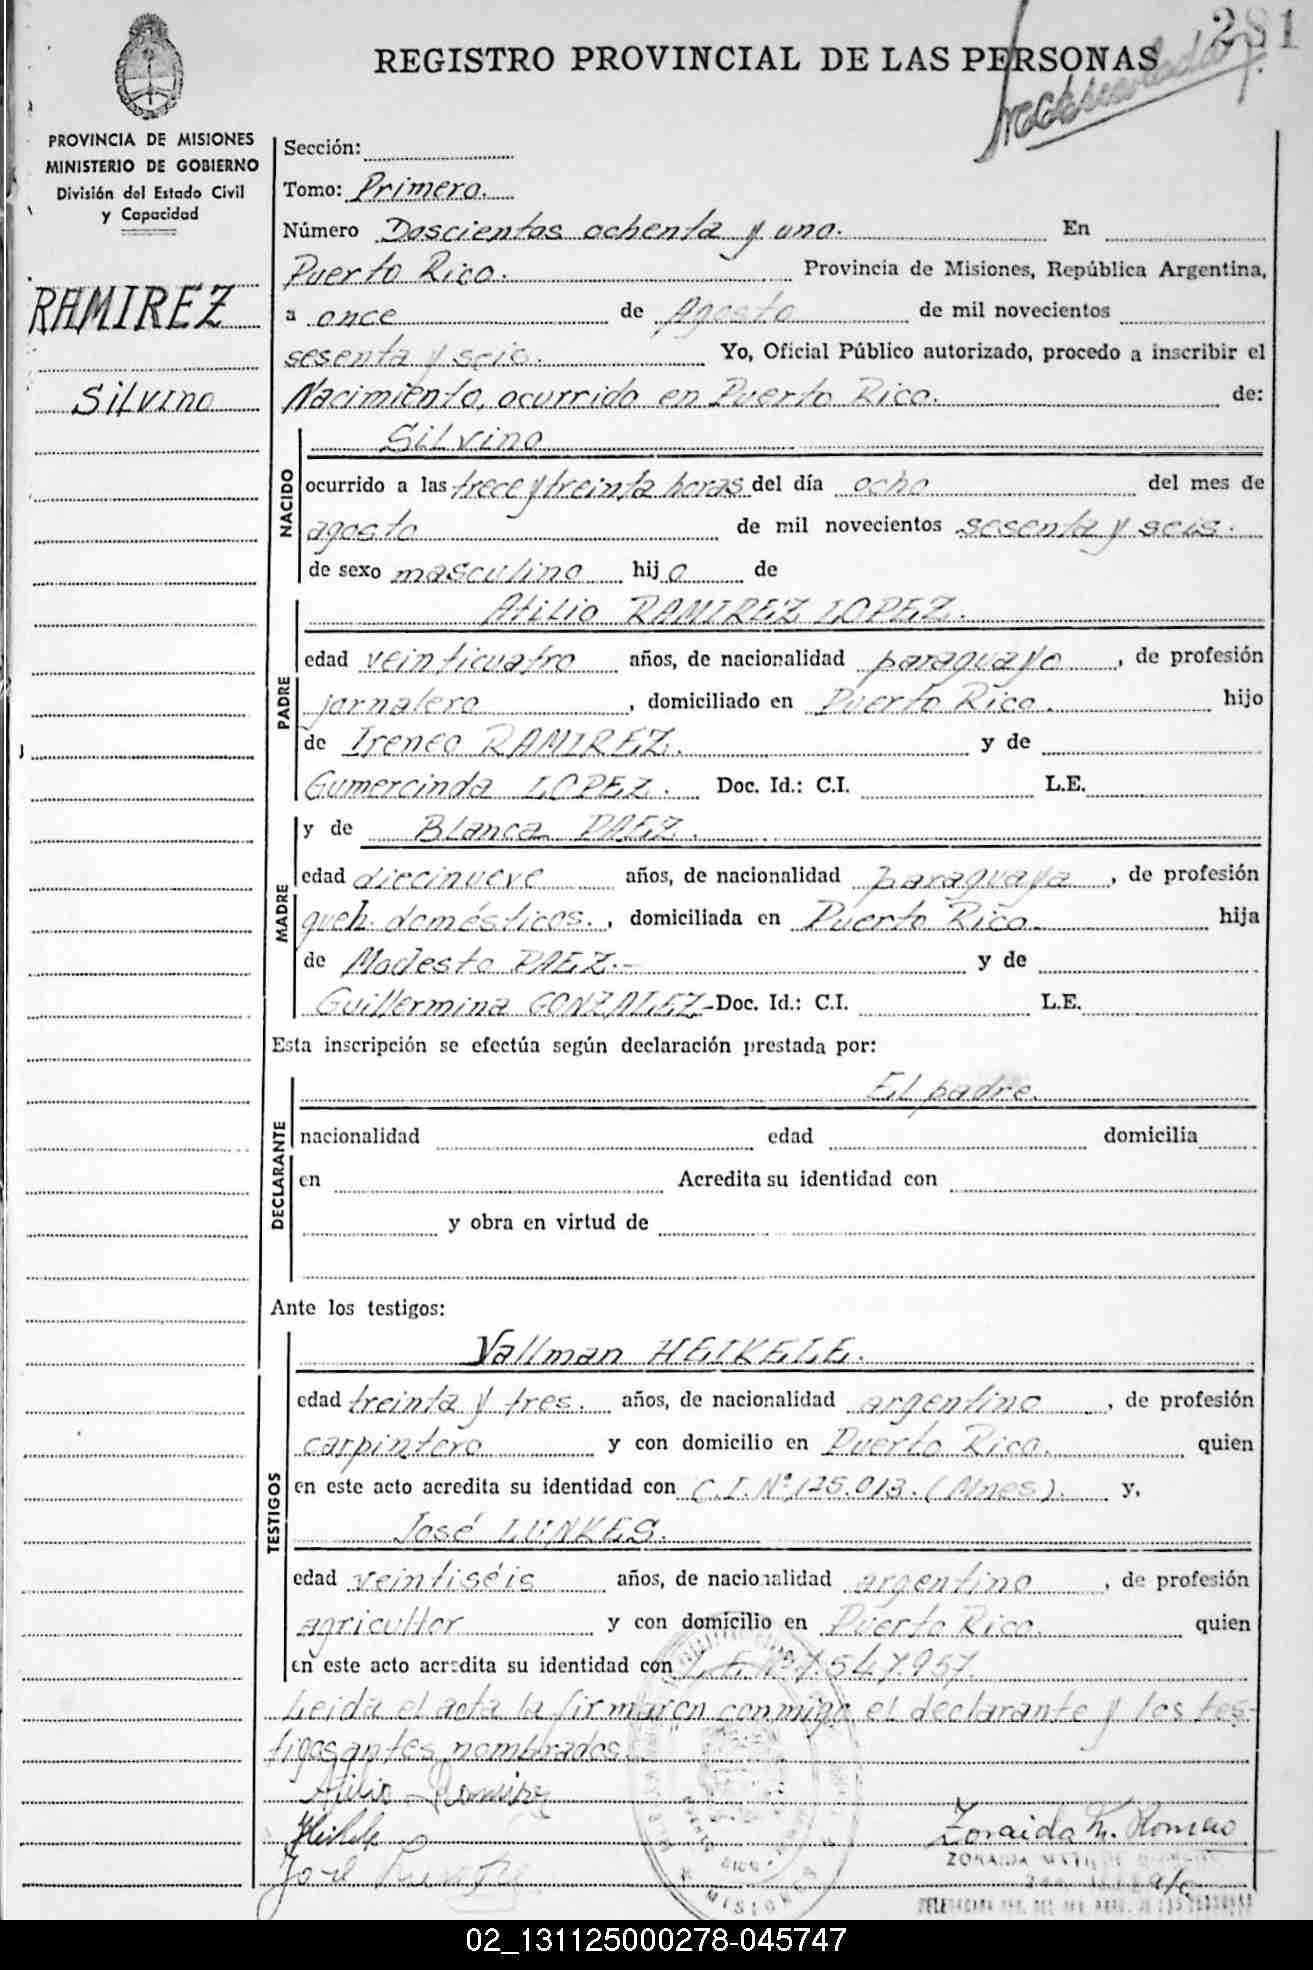 281
REGISTRO PROVINCIAL DE LAS PERSONAS
PROVINCIA DE MISIONES
MINISTERIO DE GOBIERNO
División del Estado Civil
y Capacidad
RAMIREZ
Silvino
Sección:
Tomo: Primero.
Número Doscientos ochenta y uno. En
Puerto Rico. Provincia de Misiones, República Argentina,
a once de Agosto de mil novecientos
sesenta y seis. Yo, Oficial Público autorizado, procedo a inscribir el
Nacimiento, ocurrido en Puerto Rico. de:
Silvino
NACIDO
ocurrido a las trece y treinta horas del día ocho del mes de
agosto de mil novecientos sesenta y seis.
de sexo masculino hijo de
Atilio RAMIREZ LOPEZ.
PADRE
edad veinticuatro años, de nacionalidad paraguayo, de profesión
jornalero, domiciliado en Puerto Rico. hijo
de Ireneo RAMIREZ. y de
Gumercinda LOPEZ. Doc. Id.: C.I. L.E.
y de Blanca PAEZ.
MADRE
edad diecinueve años, de nacionalidad paraguaya, de profesión
queh. domésticos., domiciliada en Puerto Rico. hija
de Modesto PAEZ.- y de
Guillermina GONZALEZ- Doc. Id.: C.I. L.E.
Esta inscripción se efectúa según declaración prestada por:
El padre.
DECLARANTE
nacionalidad edad domicilia
en Acredita su identidad con
y obra en virtud de
Ante los testigos:
Vallman HEIKELE.
TESTIGOS
edad treinta y tres. años, de nacionalidad argentino, de profesión
carpintero y con domicilio en Puerto Rico. quien
en este acto acredita su identidad con C.I.Nº 125.013. (Mnes). y,
José LUNKES.
edad veintiséis años, de nacionalidad argentino, de profesión
agricultor y con domicilio en Puerto Rico. quien
en este acto acredita su identidad con L.E.Nº 7.547.957.
Leida el acta la firmaron conmigo el declarante y los tes-
tigos antes nombrados.
Atilio Ramirez
José
Zoraida M. Romero
MISIONES
02_131125000278-045747